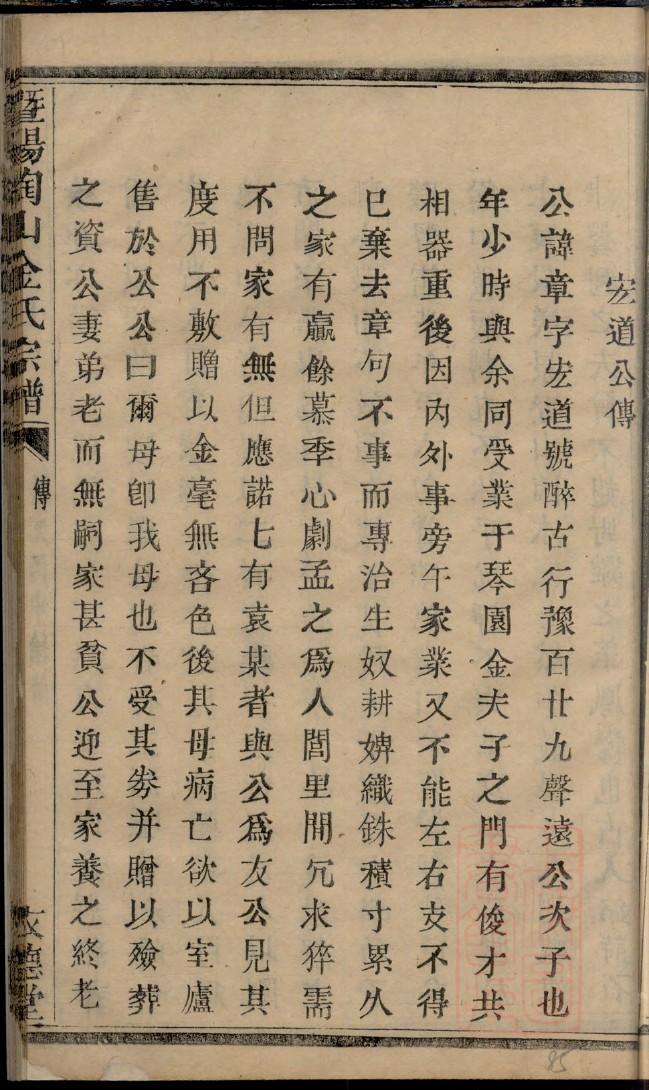 宏道公傳
公諱章字宏道號醉古行豫百廿九聲遠公次子也
年少時與余同受業于琴園金夫子之門有俊才共
相器重後因內外事旁午家業又不能左右支不得
已棄去章句不事而專治生奴耕婢織銖積寸累久
之家有贏餘慕季心劇孟之爲人閭里閒冗求猝需
不問家有無但應諾七有袁某者與公爲友公見其
度用不敷贈以金毫無吝色後其母病亡欲以室廬
售於公公曰爾母卽我母也不受其券并贈以殮葬
之資公妻弟老而無嗣家甚貧公迎至家養之終老
暨陽陶山金氏宗譜
傳
德堂
85